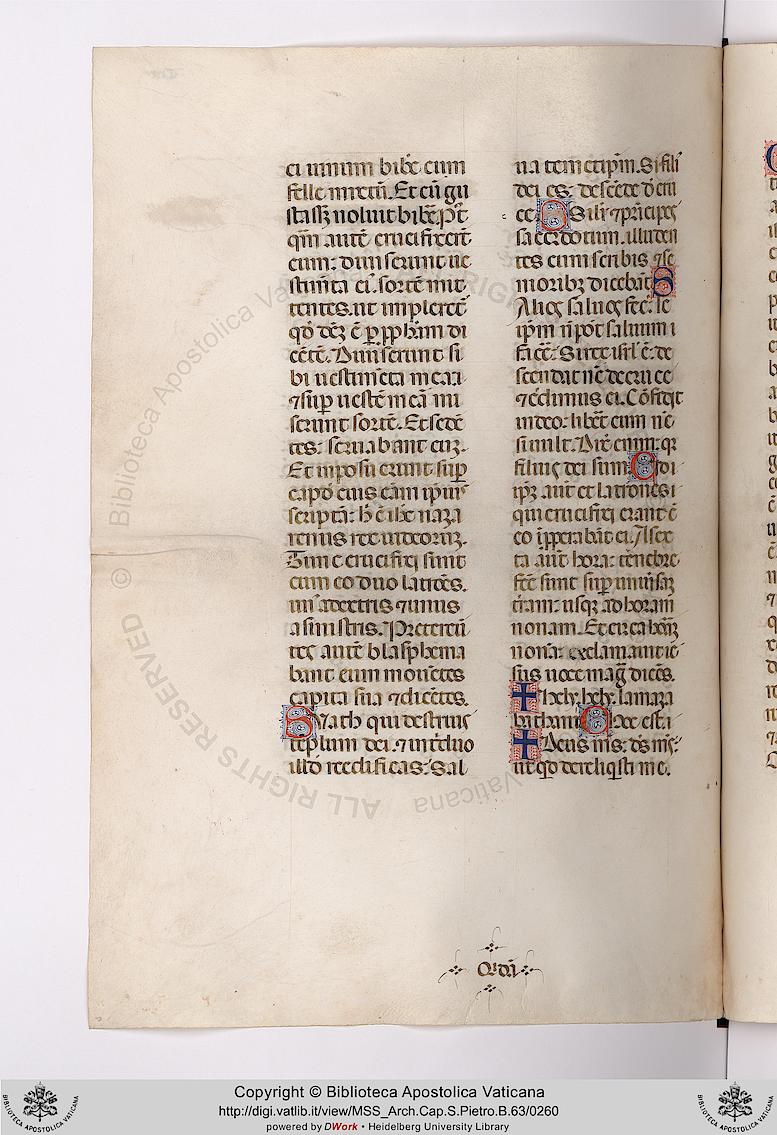 ei uinum bibe cum
felle mixtũ. Et cũ gu
stass; noluit bibe. pͦt
qm̃ autẽ crucifixert̃
eum: diuiserunt ue
stim̃ta ei. sortẽ mit
tentes. ut impleretͬ
qd̾ dc̃z ẽ ꝑ ꝓpham di
cẽtẽ. Diuiserunt si
bi uestim̃ta mea:
⁊ suꝑ uestẽ meã mi
serunt sortẽ. Et sedẽ
tes: seruabant eũ.
Et inposuerunt suꝑ
capd̾ eius cãm ip̃ius
scriptã: hͨ ẽ ihc naza
renus rex iudeoruꝫ.
Tunc crucifixi sunt
cum eo duo latrões.
un̾ adextris ⁊ unus
asinistris. Pretereũ
tes autẽ blasphema
bant eum mouẽtes
capita sua ⁊ dicẽtes.
S Uath qui destruis
templum dei. ⁊ intͥduo
illd̾ reedificas: Sal
ua temetip̃m. Si fili
dei es: descẽde d̾ cru
ce C Silr ⁊ pͥncipes
sacerdotum. illuden
tes cum scribis ⁊ se
moribꝫ dicebãt S
Alios saluos fec: se
ip̃m ñ põt saluum
facẽ: Si rex isrl ẽ: de
scendat nc̃ de cruce
⁊ cͬdimus ei. Cõfidit
in deo: libet eum nc̃
si uult. Dix̃ enim: qꝛ
filius dei sum C di
ip̃ꝫ aut̃ et latrones
qui crucifixi erant c̃
eo ip̃perabãt ei. A sex
ta aut̃ hora: tenebre
fc̃e sunt suꝑ uniũsaꝫ
tr̃am: usqꝫ ad horam
nonam. Et circa horã
nonã: exclamauit ie
sus uoce mag̃ dicẽs.
✠ hely. hely. lamaza
bathani C Hoc est.
✠ Deus ms̃: ds̃ ms̃:
ut qd̾ dereliqͥsti me.
Copyright © Biblioteca Apostolica Vaticana
http://digi.vatlib.it/view/MSS_Arch.Cap.S.Pietro.B.63/0260
powered by DWork • Heidelberg University Library
© Biblioteca Apostolica Vaticana
ALL RIGHTS RESERVED
BIBLIOTECA APOSTOLICA VATICANA
BIBLIOTECA APOSTOLICA VATICANA